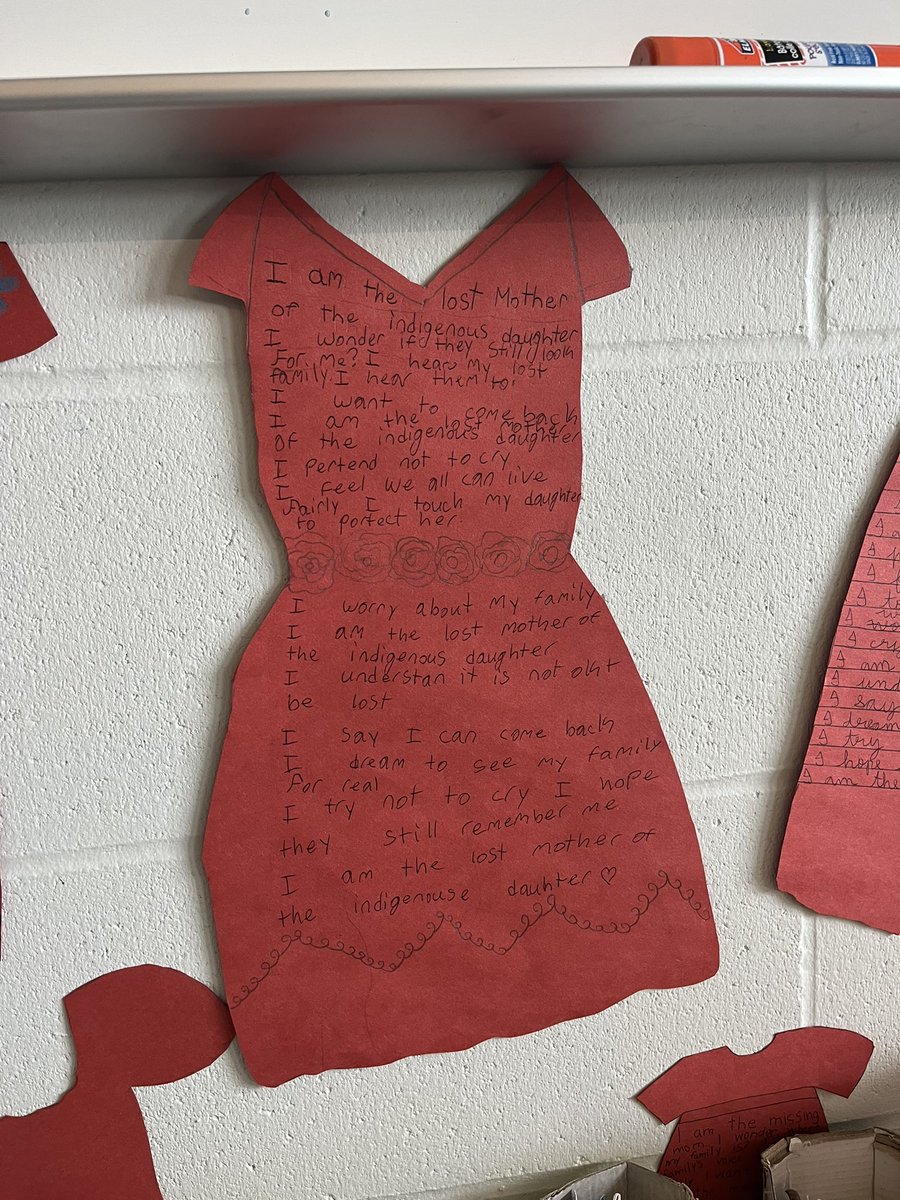 I am the lost Mother
of the indigenous daughter
I wonder if they still look
For me? I hear my lost
family. I hear them to.
I want to come back
I am the lost mother
of the indigenous daughter
I pertend not to cry
I feel we all can live
fairly I touch my daughter
to portect her.
I worry about my family
I am the lost mother of
the indigenous daughter
I understan it is not okt
be lost
I say I can come back
I dream to see my family
for real
I try not to cry I hope
they still remember me
I am the lost mother of
the indigenouse dauhter ♡
I
I
I
I
I
I cry
I am
I und
I say
I dream
I try
I hope
I am the
I am the missing
mom I wonder
my family is
family's
I wan